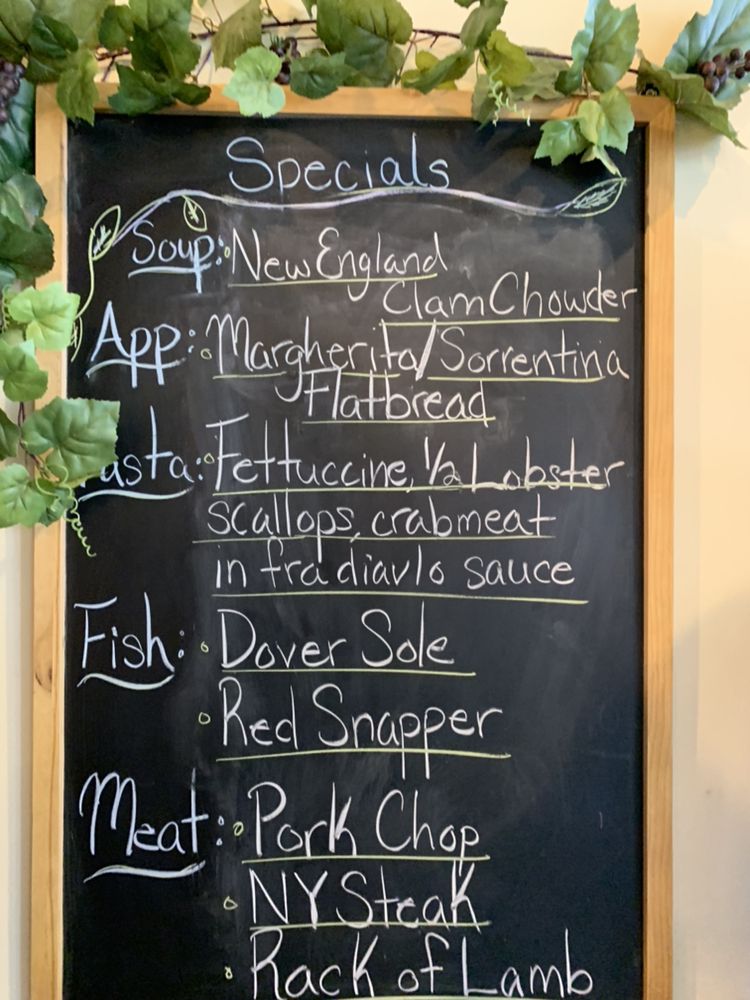 Specials
Soup: New England
Clam Chowder
App: Margherita/Sorrentina
Flatbread
asta: Fettuccine, 1/2 Lobster
scallops, crabmeat
in fra diavlo sauce
Fish: Dover Sole
Red Snapper
Meat: Pork Chop
NY Steak
Rack of Lamb